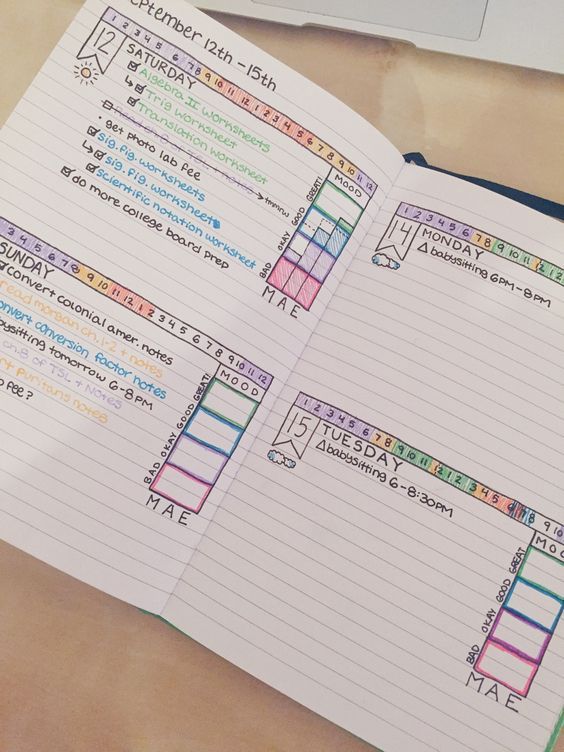 September 12th - 15th
1 2 3 4 5 6 7 8 9 10 11 12 1 2 3 4 5 6 7 8 9 10 11 12
12
SATURDAY
Algebra II Worksheets
Trig Worksheet
Translation Worksheet
→ tmmrw
get photo lab fee
sig. fig. worksheets
sig. fig. worksheets
scientific notation worksheet
do more college board prep
MOOD
GREAT!
GOOD
OKAY
BAD
M A E
3 4 5 6 7 8 9 10 11 12 1 2 3 4 5 6 7 8 9 10 11 12
SUNDAY
convert colonial amer. notes
read morgan ch. 1-2 + notes
convert conversion factor notes
babysitting tomorrow 6-8 PM
ch. 8 of TSL + Notes
puritans notes
fee?
MOOD
GREAT!
GOOD
OKAY
BAD
M A E
1 2 3 4 5 6 7 8 9 10 11 12 1 2
14
MONDAY
Δ babysitting 6PM-8PM
1 2 3 4 5 6 7 8 9 10 11 12 1 2 3 4 5 6 7 8 9 10
15
TUESDAY
Δ babysitting 6-8:30PM
MOO
GREAT
GOOD
OKAY
BAD
M A E